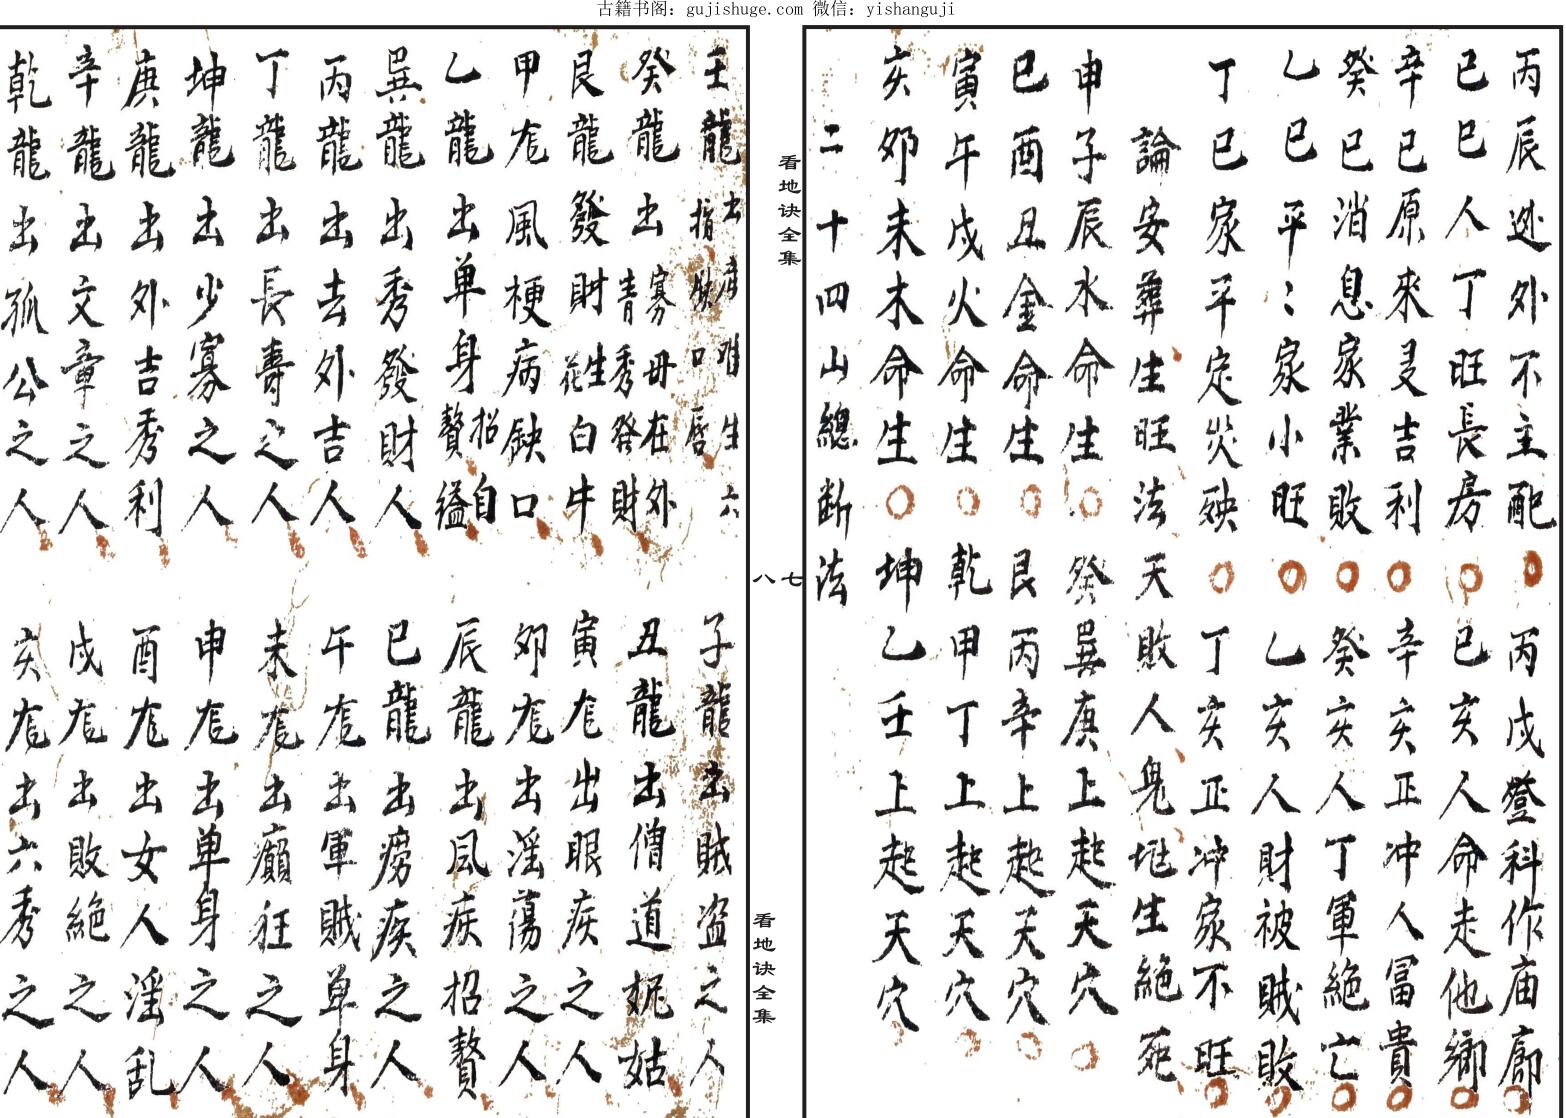 古籍书阁：gujishuge.com 微信：yishanguji
丙辰逊外不主配 丙戌登科作庙廊
巳巳人丁旺長房 巳亥人命走他鄉
辛巳原來叏吉利 辛亥正冲人冨貴
癸巳消息家業敗 癸亥人丁軍絕亡
乙巳平〻家小旺 乙亥人財被賊敗
丁巳家平定災殃 丁亥正冲家不旺
論安葬生旺法天敗人鬼地生絕死
申子辰水命生 癸巽庚上起天穴
巳酉丑金命生 艮丙辛上起天穴
寅午戌火命生 乾甲丁上起天穴
亥卯未木命生 坤乙壬上起天穴
二十四山總斷法
看地诀全集
七八
看地诀全集
壬龍出 生六指缺口唇 子龍出賊盗之人
癸龍出寡母在外青秀發財 丑龍出僧道妮姑
艮龍發財生花白牛 寅龙出眼疾之人
甲龙風梗病缺口 卯龙出淫蕩之人
乙龍出单身招贅自縊 辰龍出風疾招贅
巽龍出秀發財人 巳龍出痨疾之人
丙龍出去外吉人 午龙出軍賊单身
丁龍出長壽之人 未龙出癲狂之人
坤龍出少寡之人 申龙出单身之人
庚龍出外吉秀利 酉龙出女人淫乱
辛龍出文章之人 戌龙出敗絕之人
乾龍出孤公之人 亥龙出六秀之人